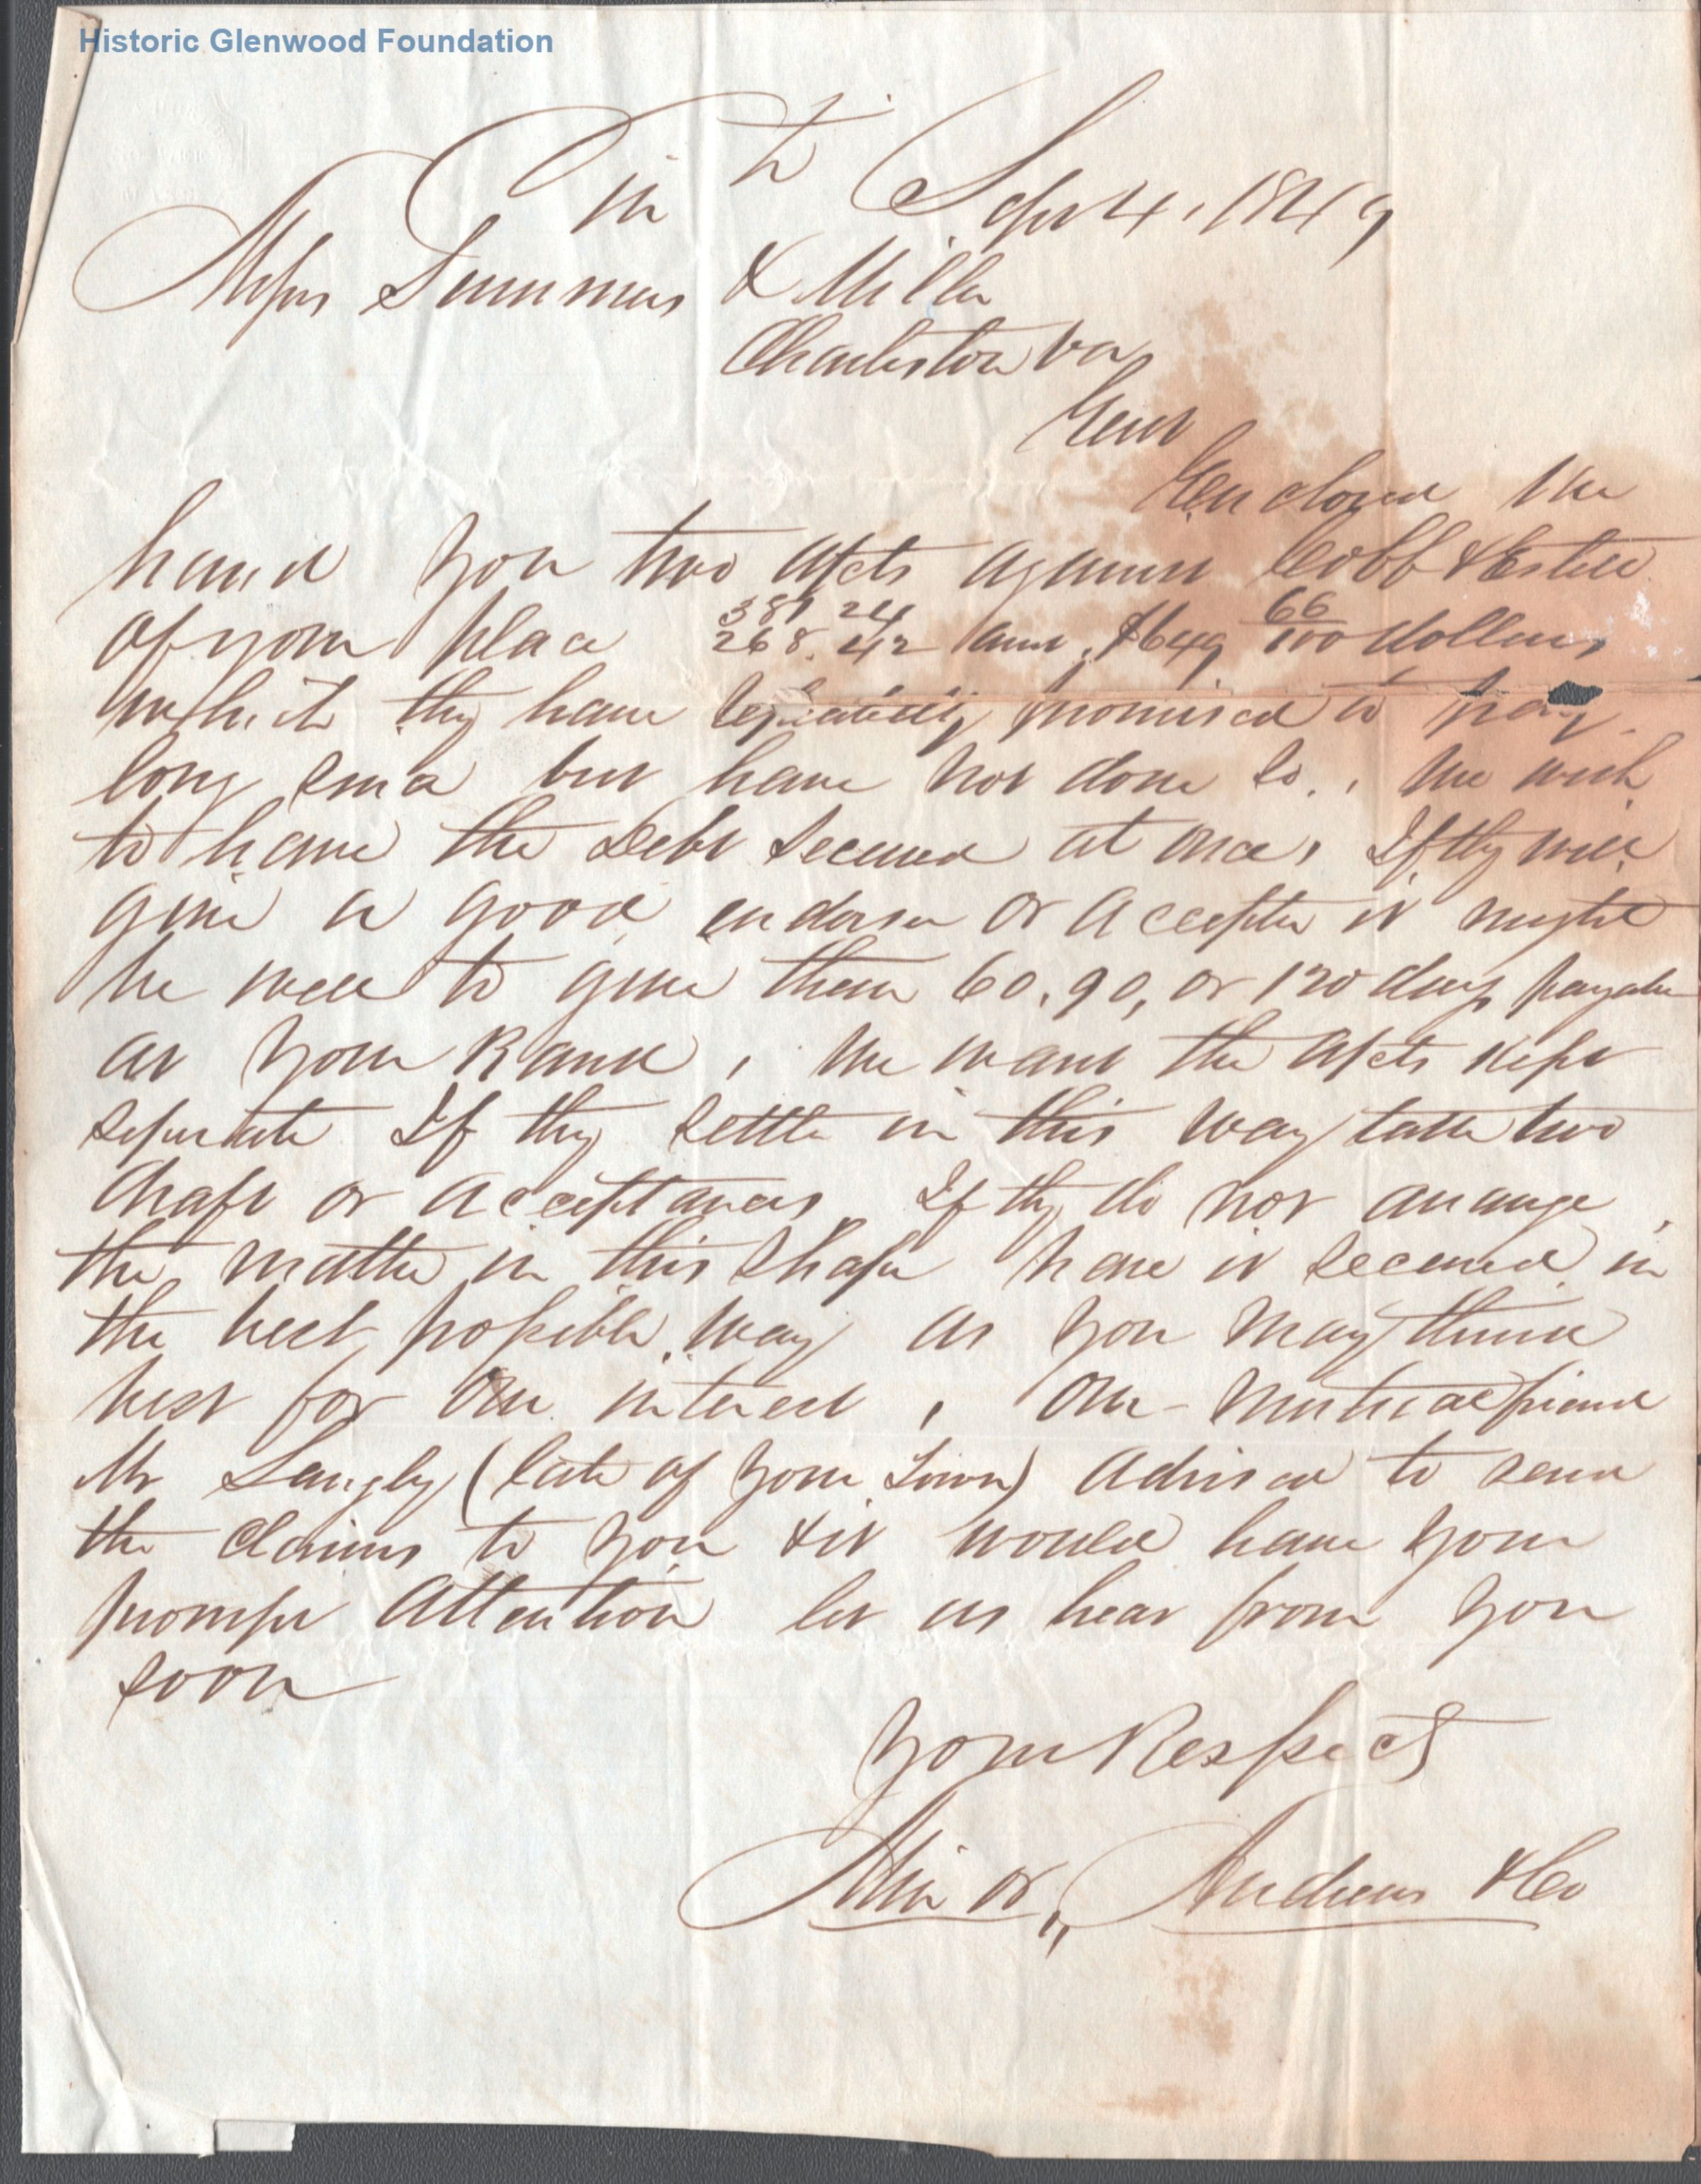 Historic Glenwood Foundation
Cin ti Sept 4, 1849
Messrs Summers & Miller
Charleston Va,
Gent
Enclosed We
hand you two a/cts against Cobb & Estill
of your place 381 24
268. 42 amt, $649 66/100 dollars,
which they have repeatedly promised to pay
long since but have not done so. , We wish
to have the Debt Secured at once, If they will
give a good endorser or accepter it might
be well to give them 60, 90, or 120 days payable
at your Bank , We want the a/cts kept
seperate If they settle in this way take two
Draft or acceptances If they do not arrange
the matter in this Shape have it secured in
the best possible way as you may think
best for our interest , Our mutual friend
Mr Langly (late of your Town) advised to send
the claims to you & it would have your
prompt attention let us hear from you
soon
Your Respect
Minor, Andrews & Co